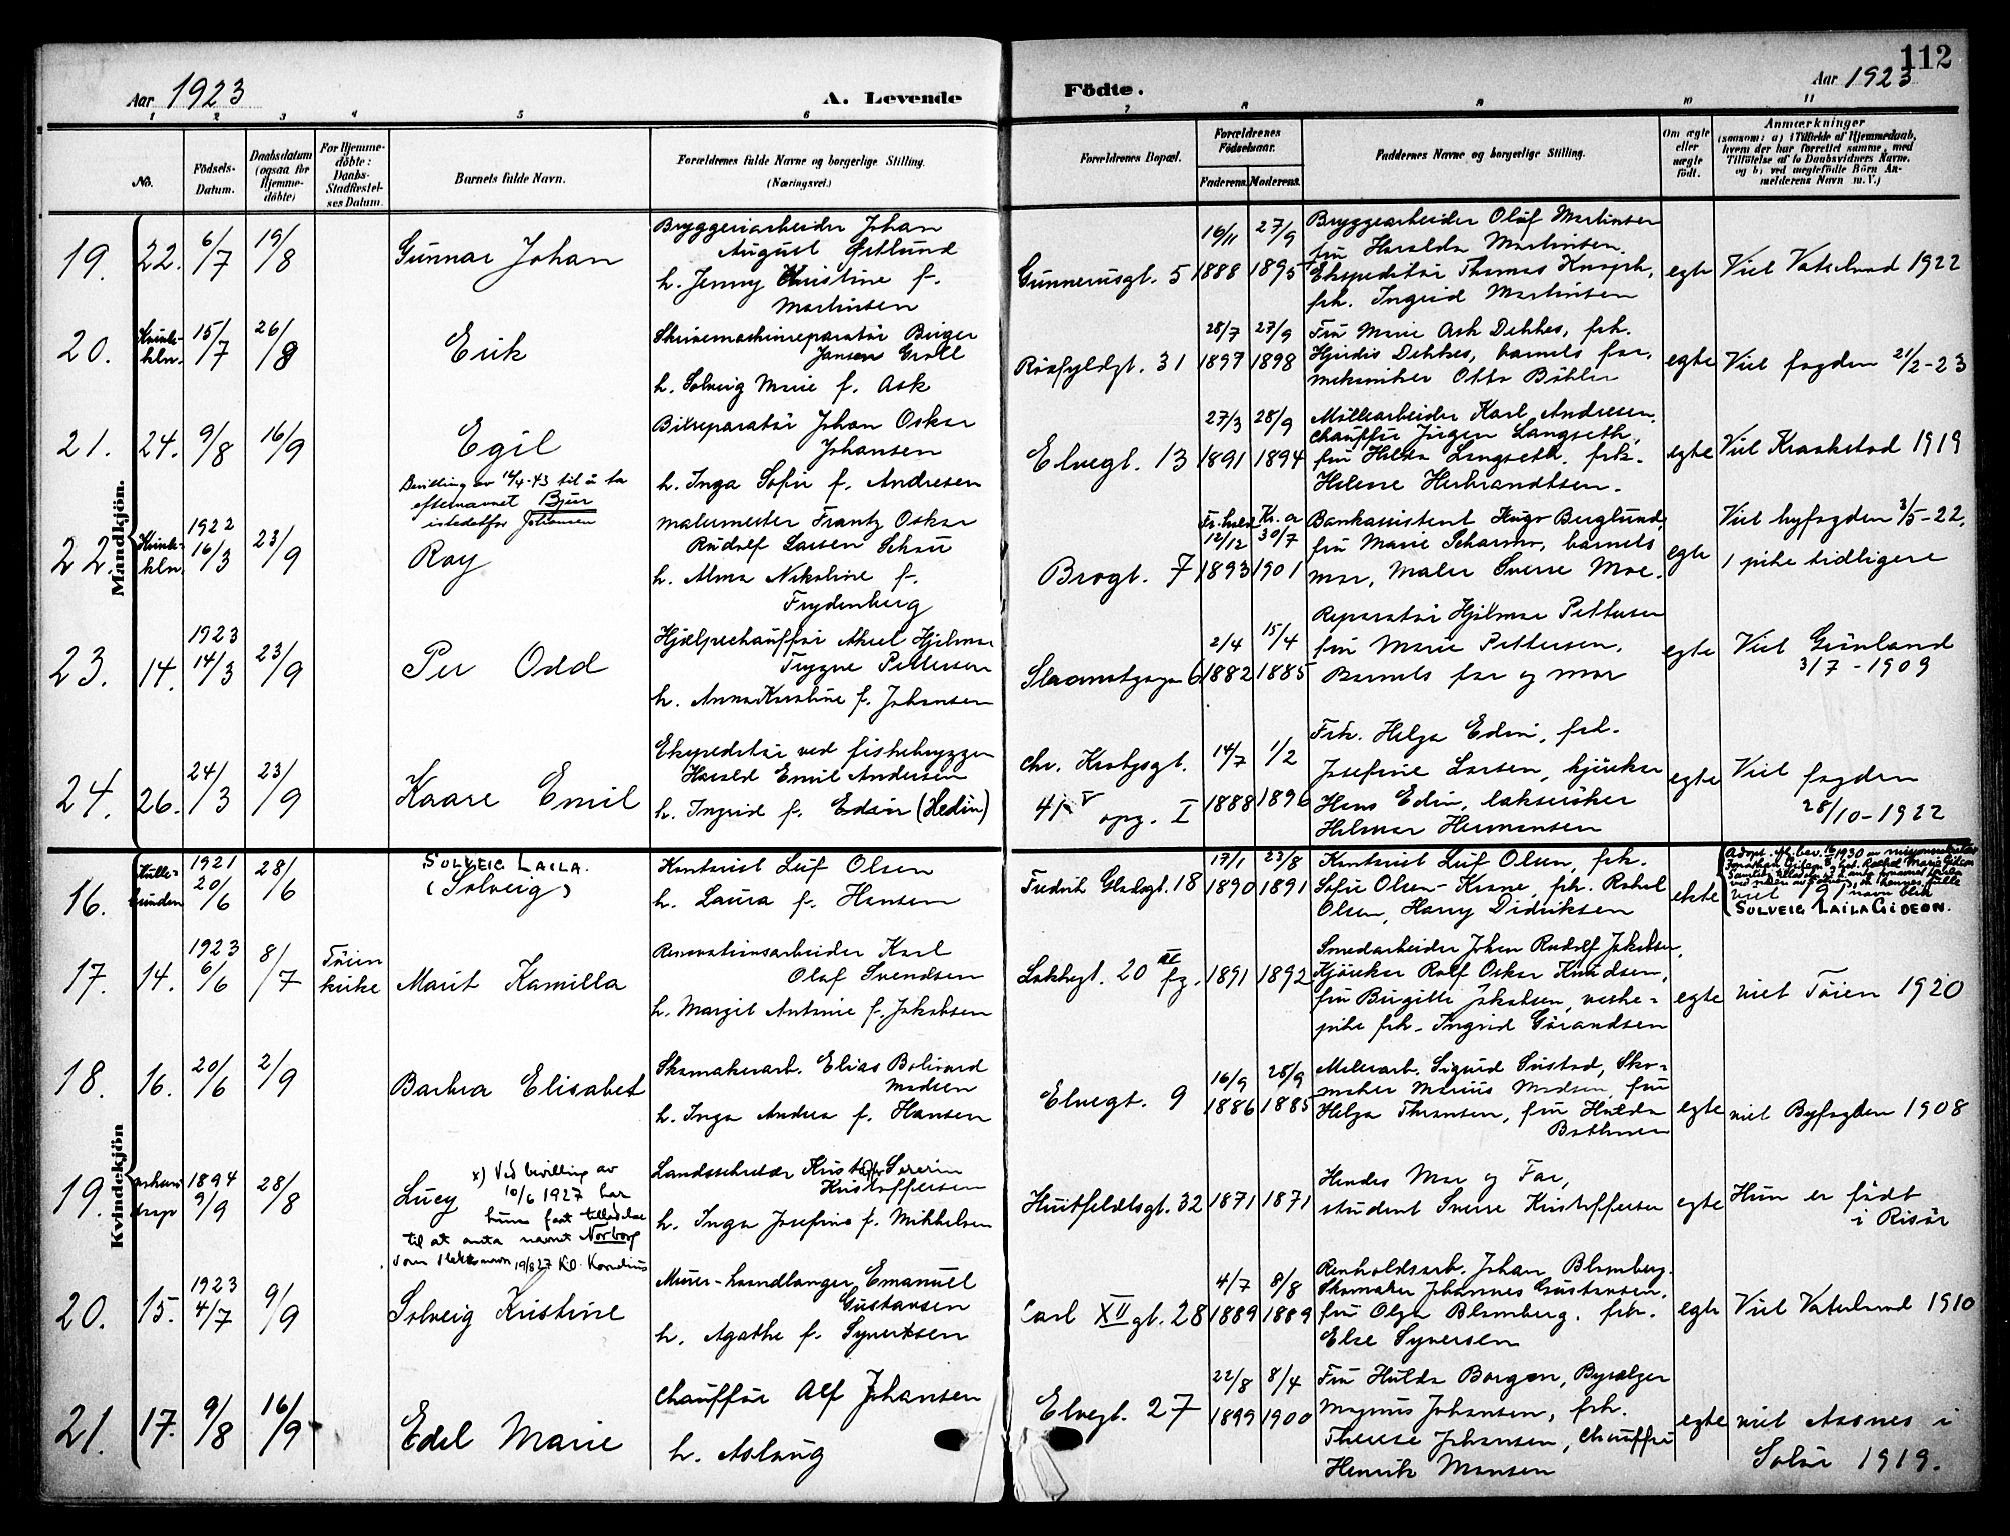 112
Aar 1923
A. Levende
Födte.
Aar 1923
1 2 3 4 5 6 7 8 9 10 11
No.
Födsels-
Datum.
Daabsdatum
(ogsaa för
Hjemme-
döbte)
For Hjemme-
döbte:
Daabs-
Stadfæstel-
ses Datum.
Barnets fulde Navn.
Forældrenes fulde Navne og borgerlige Stilling.
(Næringsvei.)
Forældrenes Bopæl.
Forældrenes
Födselsaar.
Faderens. Moderens.
Faddernes Navne og borgerlige Stilling.
Om ægte
eller
uægte
födt.
Anmærkninger
(saasom: a) i Tilfælde af Hjemmedaab,
hvem der har forrettet samme, med
Tilföielse af to Daabsvidners Navne,
og b) ved uægtefödte Börn An-
melderens Navn m. V.)
Mandkjön.
19. 22. 6/7 19/8
Gunnar Johan
Bryggeriarbeider Johan
August Østlund
h. Jenny Kristine f.
Martinsen
Gunnerusgt. 5
16/11 1888
27/9 1895
Bryggearbeider Olaf Martinsen
fru Haralda Martinsen,
Ekspeditør Thomas
frk. Ingrid Martinsen
egte
Viet Vaterland 1922
20. 15/7 26/8
Erik
Skrivemaskinreparatør Birger
Jansen Groll
h. Solveig Marie f. Ask
31
28/7 1897
27/9 1898
Fru Marie Ask Dehkes, frk.
Hjørdis Dehkes, barnets far,
mekaniker Otto Böhler
egte
Viet fogden 21/2-23
21. 24. 9/8 16/9
Egil
Bevilling av 14/4-43 til å ta
efternavnet Bjur
istedetfor Johansen
Bilreparatør Johan Oskar
Johansen
h. Inga Sofie f. Andresen
Elvegt. 13
27/3 1891
28/9 1894
Møllearbeider Karl Andresen,
chauffør Jørgen Langseth,
fru Hilda Langseth, frk.
Helene Herbrandtsen.
egte
Viet Kraakstad 1919
22. 1922 16/3 23/9
Roy
malermester Frantz Oskar
Rudolf Larsen Schou
h. Alma Nikoline f.
Frydenberg
Brogt. 7
12/12 1893
30/7 1901
Bankassistent Hugo Berglund
fru Marie barnets
mor, Maler Sverre Moe.
egte
Viet byfogden 3/5-22,
1 pike tidligere
23. 14. 1923 14/3 23/9
Per Odd
Hjælpechauffør Aksel Hjelmar
Trygve Pettersen
h. Anna Karoline f. Johansen
6
2/4 1882
15/4 1885
Reparatør Hjelmar Pettersen
fru Marie Pettersen,
Barnets far og mor
egte
Viet Grünland
3/7-1909
24. 26. 24/3 23/9
Kaare Emil
Ekspeditør ved fiskebryggen
Harald Emil Andersen
h. Ingrid f. Edin (Hedin)
Chr. Krohgsgt.
41 V opg. I
14/7 1888
1/2 1896
Frk. Helga Edin, frk.
Josefine Larsen, kjørekar
Hans Edin, lakserøker
Hilmar Hermansen
egte
Viet fogden
28/10-1922
Kvindekjön
16. 1921 20/6 28/6
SOLVEIG LAILA.
(Solveig)
Kontorist Leif Olsen
h. Laura f. Hansen
Fredrik Glads gt. 18
17/1 1890
23/8 1891
Kontorist Leif Olsen, frk.
Sofie Olsen-Krane, frk. Rakel
Olsen, Harry Didriksen
ekte
navn blir
SOLVEIG LAILA GIDEON.
17. 14. 1923 6/6 8/7
Tøien
kirke
Marit Kamilla
Renovationsarbeider Karl
Olaf Svendsen
h. Margit Antonie f. Jakobsen
Lakkegt. 20
1891
1892
Smedarbeider Johan Rudolf Jakobsen,
Kjørekar Rolf Oskar Knudsen,
fru Birgitte Jakobsen, veske-
pike frk. Ingrid Gørandsen
egte
viet Tøien 1920
18. 16. 20/6 2/9
Barbra Elisabet
Skomakerarb. Elias Bolivard
Madsen
h. Inga Andrea f. Hansen
Elvegt. 9
16/9 1886
28/9 1885
Malerarb. Sigurd Sustad, Sko-
maker Marius Madsen, fru
Helga Thransen, fru Hulda
Bothnen
egte
viet Byfogden 1908
19. 1894 9/9 28/8
Lucy
x) Ved bevilling av
10/6 1927 har
hun faat tilladelse
til at anta navnet Norborg
som slektsnavn 19/8 27 Kornelius
Landssekretær Kristoffer Severin
Kristoffersen
h. Inga Josefine f. Mikkelsen
Huitfeldtsgt. 32
1871
1871
Hendes Mor og Far,
student Sverre Kristoffersen
egte
Hun er født
i Risør
20. 15. 1923 4/7 9/9
Solveig Kristine
Murer-haandlanger Emanuel
Gustavsen
h. Agathe f. Syvertsen
Carl XII gt. 28
4/7 1889
8/8 1889
Renholdsarb. Johan Blomberg.
Skomaker Johannes Gustavsen,
fru Olga Blomberg. frk.
Else Syversen
egte
Viet Vaterland 1910
21. 17. 9/8 16/9
Edel Marie
Chauffør Alf Johansen
h. Aslaug
Elvegt. 27
22/8 1899
8/4 1900
Fru Hulda Borgen, Bysælger
Magnus Johansen, frk.
Therese Johansen, Chauffør
Henrik Monsen
egte
viet Aasnes i
Solør 1919.